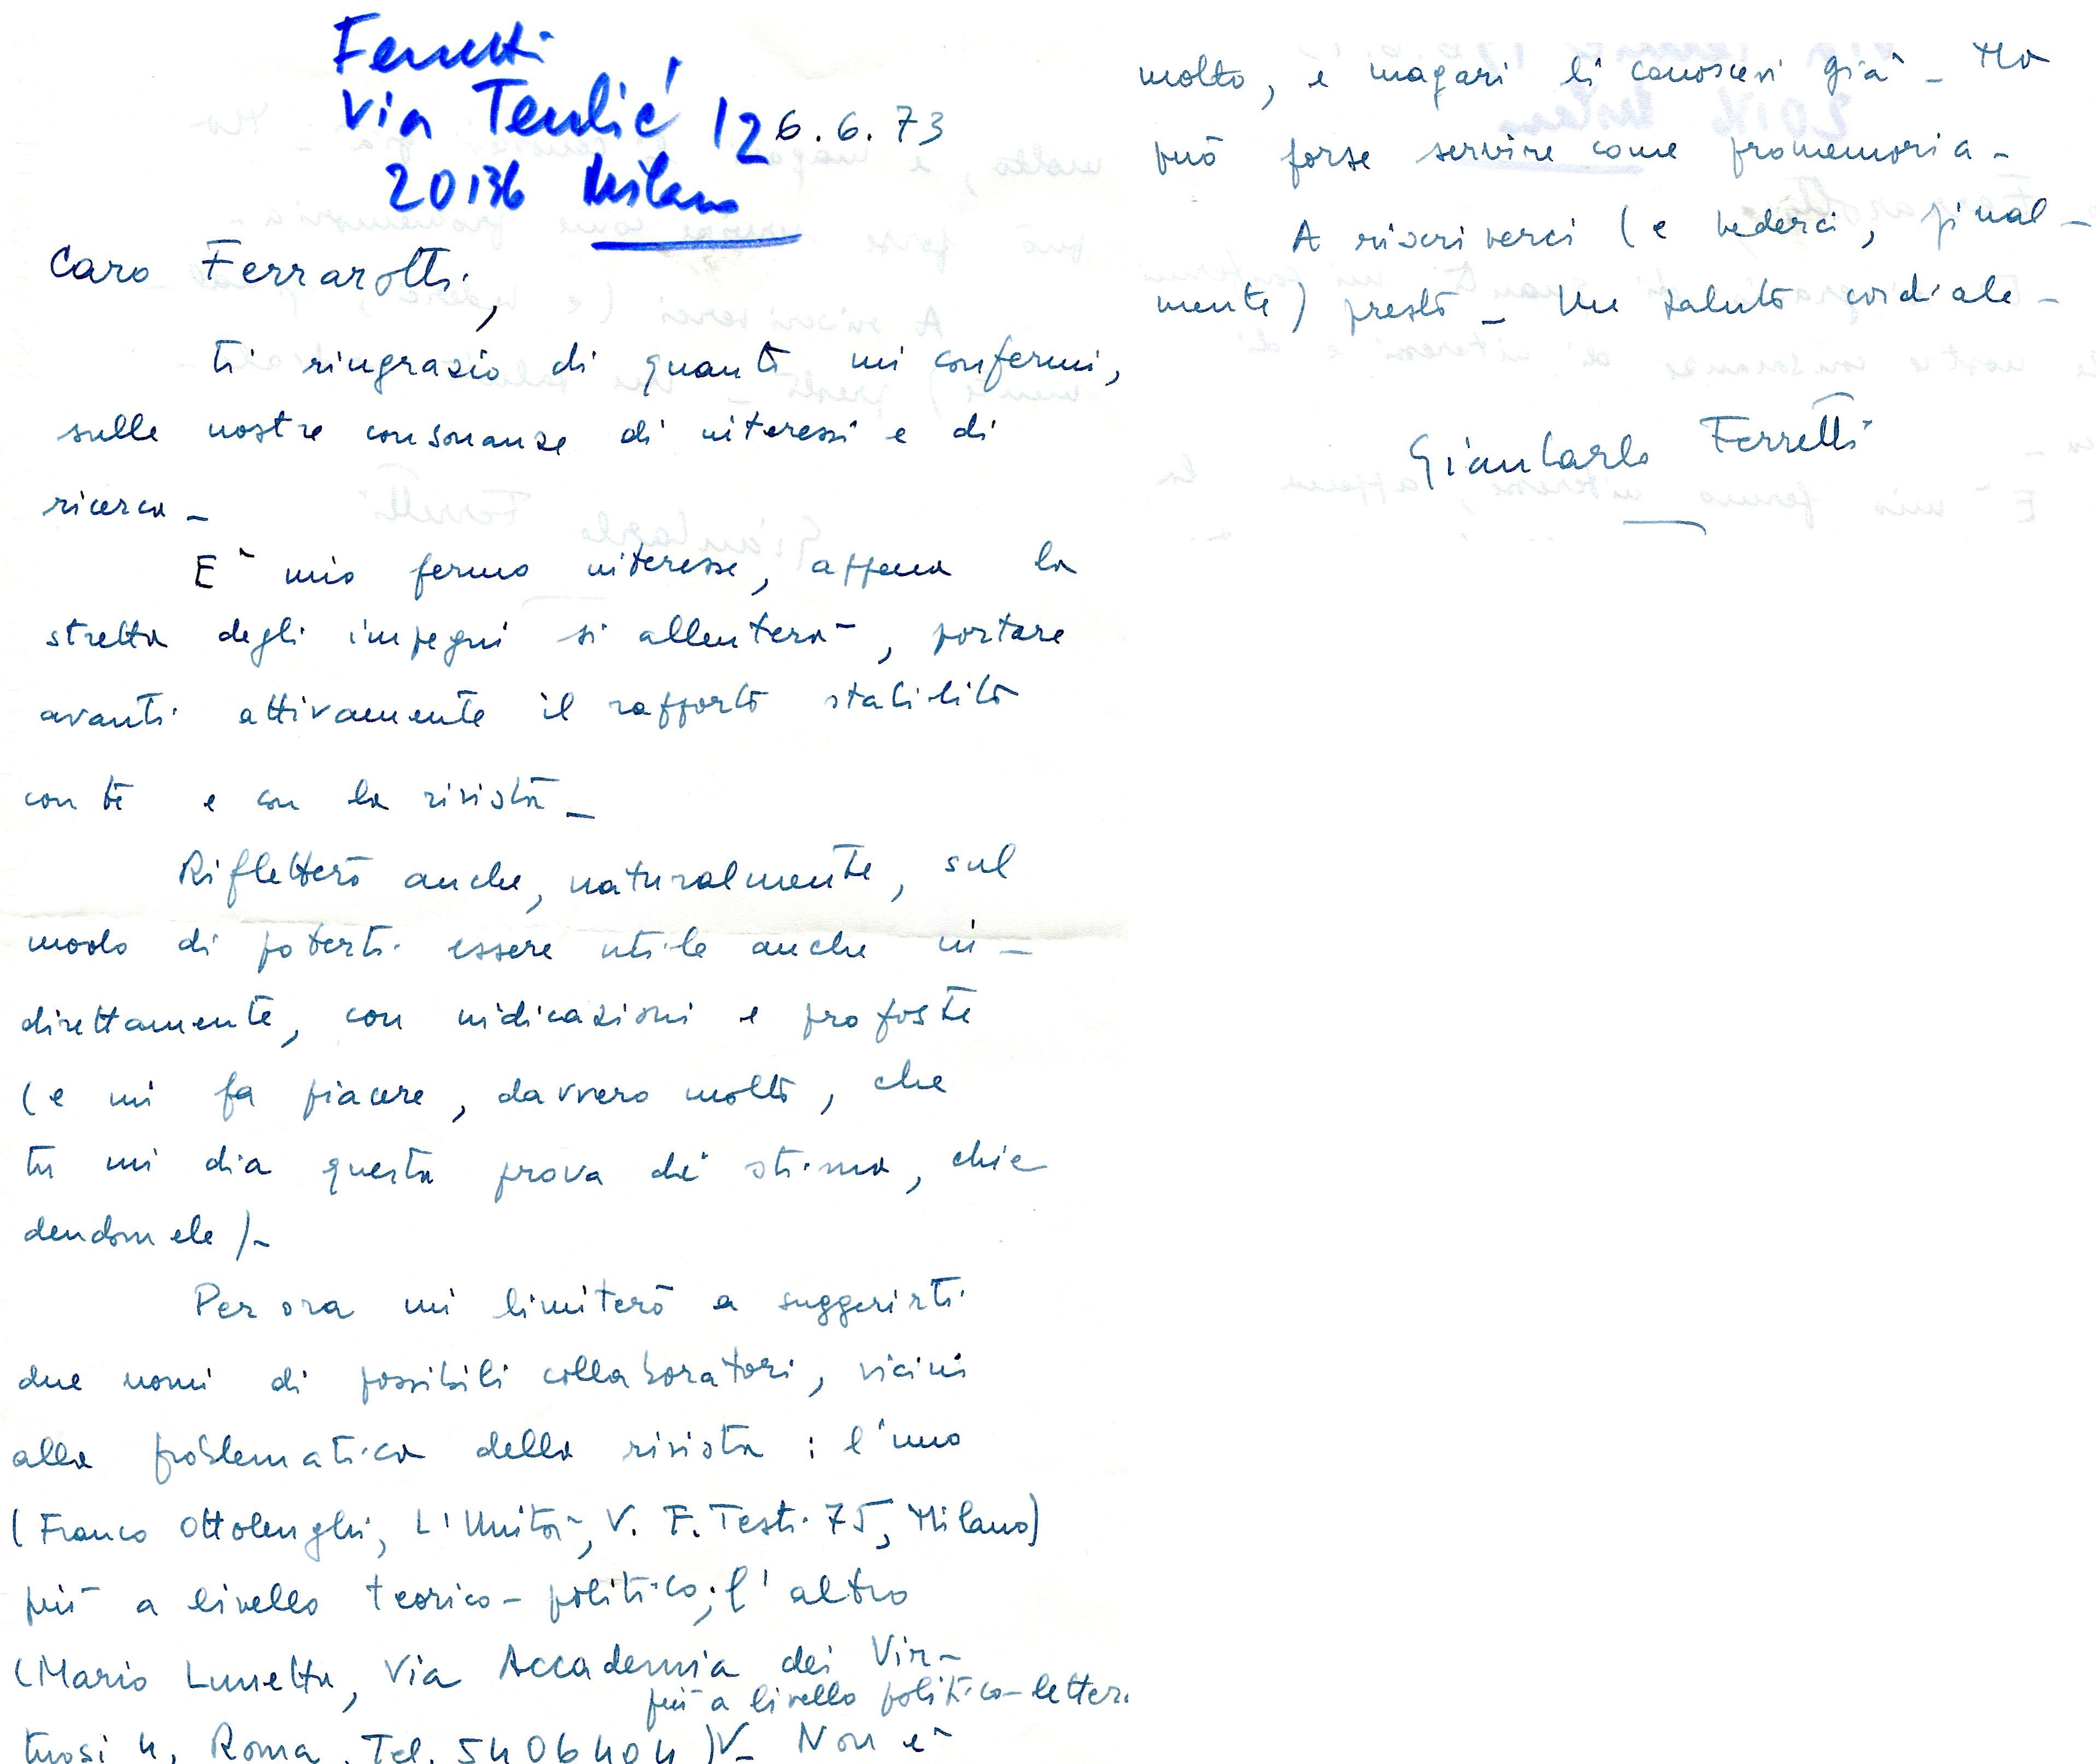 Ferretti
Via Teulié 12
20136 Milano
6.6.73
Caro Ferrarotti,
ti ringrazio di quanto mi confermi,
sulle nostre consonanze di interessi e di
ricerca -
E' mio fermo interesse, appena la
stretta degli impegni si allenterà, portare
avanti attivamente il rapporto stabilito
con te e con la rivista -
Rifletterò anche, naturalmente, sul
modo di poterti essere utile anche in-
direttamente, con indicazioni e proposte
(e mi fa piacere, davvero molto, che
tu mi dia questa prova di stima, chie
dendomele)-
Per ora mi limiterò a suggerirti
due nomi di possibili collaboratori, vicini
alla problematica della rivista : l'uno
(Franco Ottolenghi, L'Unità, V. F. Testi 75, Milano)
più a livello teorico-politico; l'altro
(Mario Lunetta, Via Accademia dei Vir-
più a livello politico-letter.
tuosi 4, Roma. Tel. 5406404)V- Non è
molto, e magari li conoscevi già - Ma
può forse servire come promemoria -
A riscriverci (e vederci, final-
mente) presto - Un saluto cordiale -
Giancarlo Ferretti